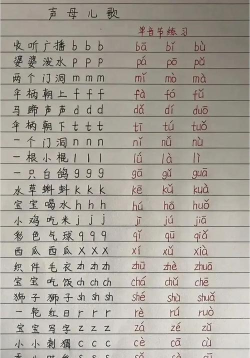 声母儿歌
单音节练习
收听广播 b b b bā bǐ bù
婆婆泼水 p p p pá pō pǎ
两个门洞 m m m mǐ mō mà
半柄朝上 f f f fā fá fù
马蹄声声 d d d dā dí duō
半柄朝下 t t t tī tú tuǒ
一个门洞 n n n nǐ nǎ nù
一根小棍 l l l lú là lì
一只白鸽 g g g gā gǔ guā
水草蝌蚪 k k k kē kǔ kuà
宝宝喝水 h h h hú hā huǒ
小鸡吃米 j j j jī jú jiā
彩色气球 q q q qī qǔ qiǒ
西瓜西瓜 x x x xí xǔ xià
织件毛衣 zh zh zh zhū zhè zhuā
宝宝吃饭 ch ch ch chá chǔ chē
狮子狮子 sh sh sh shé shù shuā
一轮红日 r r r rè rú ruò
宝宝写字 z z z zá zé zǔ
小小刺猬 c c c cā cè cù